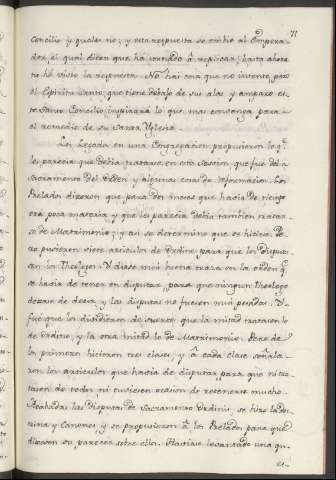 71
Concilio y quales no; y esta respuesta se embio al Empera-
dor, el qual dicen que ha tornado à replicar; hasta ahora
no hè visto la respuesta. No hai cosa que no invente, pero
el Espiritu Santo que tiene debajo de sus alas y amparo es-
te Santo Concilio inspirarà lo que mas convenga para
el remedio de su Santa Yglesia.
Los Legados en una Congregacion propusieron lo q.e
les parecia que debia tratarse en esta Session, que fuè del
Sacramento del Orden y algunas cosas de reformacion. Los
Prelados dixeron que para dos meses que havia de tiempo
era poca materia y que les parecia debia tambien tratar-
se de Matrimonio; y asi se determinò que se hiciese.
pusieron siete articulos de Ordine para que los disputa-
an los Theologos. Y diose mui buena traza en la orden q.e
se havia de tener en disputar para que ningun Theologo
dexase de decir y las disputas no fuesen mui pesadas. Y
fuè que los dividieron de suerte que la mitad tratasen lo
de Ordine, y la otra mitad lo de Matrimonio.
los primeros hicieron tres clases, y à cada clase señala-
ron los articulos que havia de disputar para que ni tra-
tasen de todos ni tuviesen ocasion de detenerse mucho.
Acabadas las Disputas de Sacramento Ordinis, se hizo la doc-
trina y Canones, y se propusieron à los Prelados para que
dixesen su parecer sobre ellos. Haviase levantado una qu-
es-